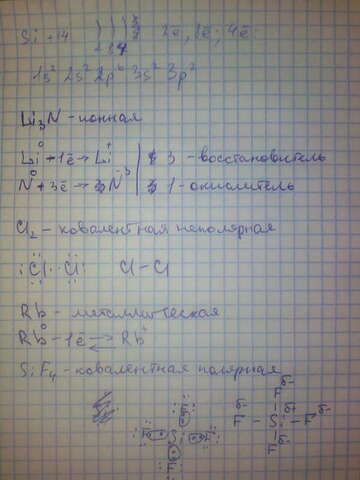 Si +14 ) ) ) 2ē, 8ē, 4ē
2 8 4
1s² 2s² 2p⁶ 3s² 3p²
Li₃N - ионная
Li⁰ + 1ē → Li⁺ | 3 - восстановитель
N⁰ + 3ē → N⁻³ | 1 - окислитель
Cl₂ - ковалентная неполярная
:Cl··Cl: Cl-Cl
Rb - металлическая
Rb⁰ - 1ē ⇄ Rb⁺
SiF₄ - ковалентная полярная
F δ-
F δ- F δ-
F Si F F - Si δ+ - F
F F δ-